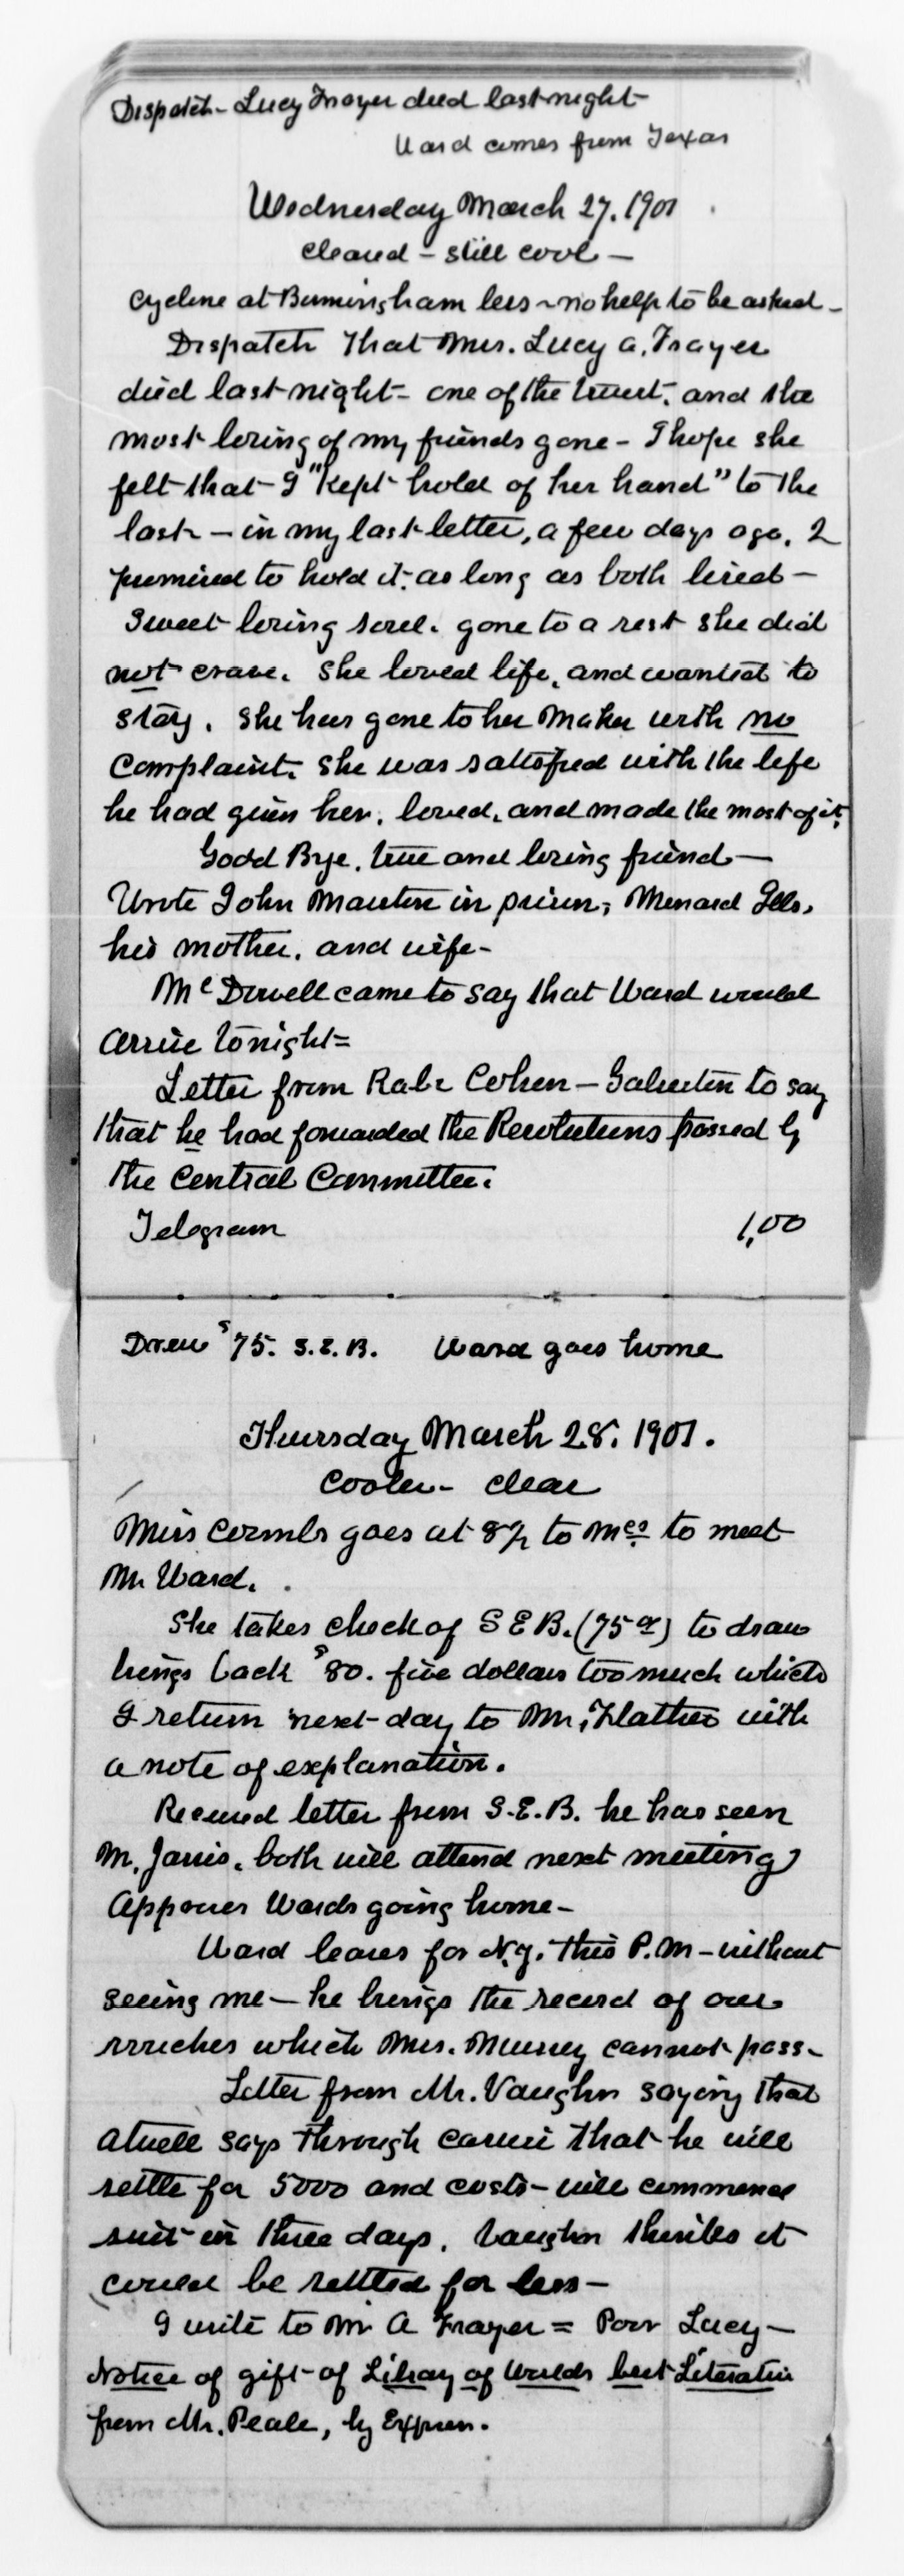 Dispatch - Lucy Frayer died last night -
Ward comes from Texas
Wednesday March 27. 1901
cleared - still cool -
Cyclone at Birmingham less - no help to be asked -
Dispatch that Mrs. Lucy A. Frayer
died last night - one of the truest, and the
most loving of my friends gone - I hope she
felt that I "kept hold of her hand" to the
last - in my last letter, a few days ago, I
promised to hold it, as long as both lived -
Sweet loving soul. gone to a rest she did
not crave. She loved life, and wanted to
stay. She has gone to her Maker with no
Complaint. She was satisfied with the life
he had given her, loved, and made the most of it,
Good Bye, true and loving friend -
Wrote John in prison, Menard Ills.
his mother, and wife -
McDowell came to say that Ward would
arrive tonight =
Letter from Rabi Cohen - Galveston to say
that he had forwarded the Resolutions passed by
the Central Committee.
Telegram 1,00
Drew $75. S.E.B. Ward goes home
Thursday March 28. 1901.
Cooler - clear
Miss Coombs goes at 8½ to Mcs to meet
Mr Ward.
She takes check of S E B. (75 00) to draw
brings back $80. five dollars too much which
I return next day to Mr. Flather with
a note of explanation.
Received letter from S.E.B. he has seen
M. Janis. both will attend next meeting
Approves Wards going home -
Ward leaves for N.Y. this P.M - without
seeing me - he brings the record of our
vouchers which Mrs. Mussey cannot pass -
Letter from Mr. Vaughn saying that
Atwell says through that he will
settle for 5000 and costs - will commence
suit in three days. Vaughn thinks it
could be settled for less -
I write to Mr A Frayer = Poor Lucy -
Notice of gift - of Libray of Worlds best Literatur
from Mr. Peale, by Express.